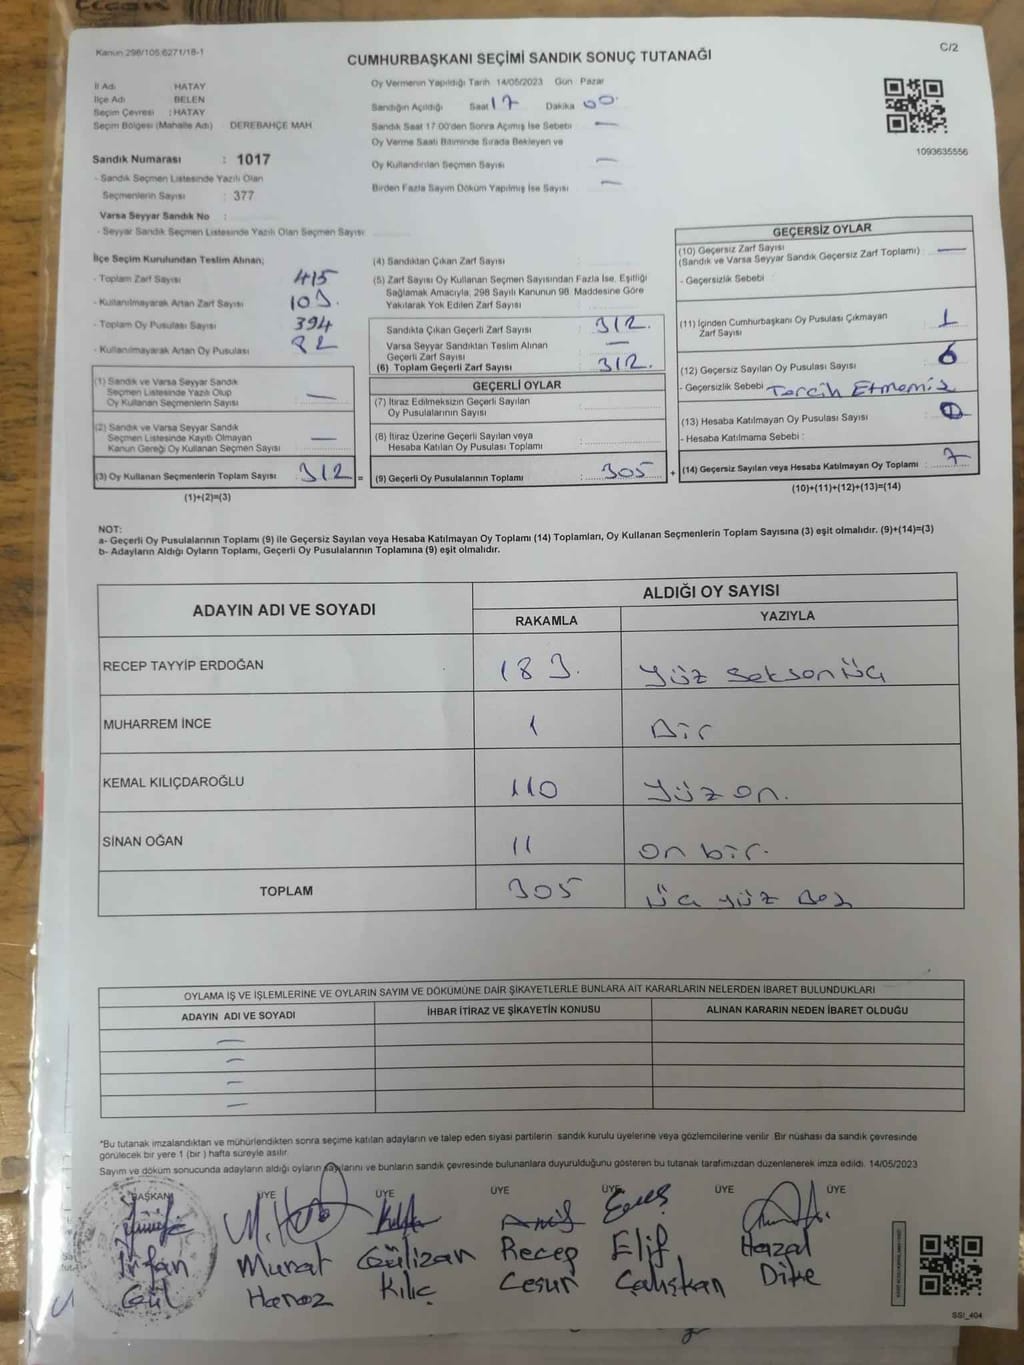 Kanun 298/105.6271/18-1
C/2
CUMHURBAŞKANI SEÇİMİ SANDIK SONUÇ TUTANAĞI
İl Adı HATAY
İlçe Adı BELEN
Seçim Çevresi : HATAY
Seçim Bölgesi (Mahalle Adı) DEREBAHÇE MAH
Sandık Numarası : 1017
- Sandık Seçmen Listesinde Yazılı Olan
Seçmenlerin Sayısı : 377
Varsa Seyyar Sandık No :
- Seyyar Sandık Seçmen Listesinde Yazılı Olan Seçmen Sayısı
Oy Vermenin Yapıldığı Tarih 14/05/2023 Gün Pazar
Sandığın Açıldığı Saat 17 Dakika 00
Sandık Saat 17:00'den Sonra Açımış İse Sebebi —
Oy Verme Saati Bitiminde Sırada Bekleyen ve
Oy Kullandırılan Seçmen Sayısı —
Birden Fazla Sayım Döküm Yapılmış İse Sayısı —
1093635556
İlçe Seçim Kurulundan Teslim Alınan;
- Toplam Zarf Sayısı 415
- Kullanılmayarak Artan Zarf Sayısı 103.
- Toplam Oy Pusulası Sayısı 394
- Kullanılmayarak Artan Oy Pusulası 82
(1) Sandık ve Varsa Seyyar Sandık
Seçmen Listesinde Yazılı Olup
Oy Kullanan Seçmenlerin Sayısı —
(2) Sandık ve Varsa Seyyar Sandık
Seçmen Listesinde Kayıtlı Olmayan
Kanun Gereği Oy Kullanan Seçmen Sayısı —
(3) Oy Kullanan Seçmenlerin Toplam Sayısı 312 =
(1)+(2)=(3)
(4) Sandıktan Çıkan Zarf Sayısı
(5) Zarf Sayısı Oy Kullanan Seçmen Sayısından Fazla İse, Eşitliği
Sağlamak Amacıyla, 298 Sayılı Kanunun 98. Maddesine Göre
Yakılarak Yok Edilen Zarf Sayısı
Sandıkta Çıkan Geçerli Zarf Sayısı : 312.
Varsa Seyyar Sandıktan Teslim Alınan
Geçerli Zarf Sayısı —
(6) Toplam Geçerli Zarf Sayısı : 312.
GEÇERLİ OYLAR
(7) İtiraz Edilmeksizin Geçerli Sayılan
Oy Pusulalarının Sayısı
(8) İtiraz Üzerine Geçerli Sayılan veya
Hesaba Katılan Oy Pusulası Toplamı
(9) Geçerli Oy Pusulalarının Toplamı : 305 +
GEÇERSİZ OYLAR
(10) Geçersiz Zarf Sayısı
(Sandık ve Varsa Seyyar Sandık Geçersiz Zarf Toplamı) : —
- Geçersizlik Sebebi :
(11) İçinden Cumhurbaşkanı Oy Pusulası Çıkmayan
Zarf Sayısı 1
(12) Geçersiz Sayılan Oy Pusulası Sayısı : 6
- Geçersizlik Sebebi : Tercih Etmemiş
(13) Hesaba Katılmayan Oy Pusulası Sayısı
- Hesaba Katılmama Sebebi :
(14) Geçersiz Sayılan veya Hesaba Katılmayan Oy Toplamı : 7
(10)+(11)+(12)+(13)=(14)
NOT:
a- Geçerli Oy Pusulalarının Toplamı (9) ile Geçersiz Sayılan veya Hesaba Katılmayan Oy Toplamı (14) Toplamları, Oy Kullanan Seçmenlerin Toplam Sayısına (3) eşit olmalıdır. (9)+(14)=(3)
b- Adayların Aldığı Oyların Toplamı, Geçerli Oy Pusulalarının Toplamına (9) eşit olmalıdır.
ADAYIN ADI VE SOYADI
ALDIĞI OY SAYISI
RAKAMLA YAZIYLA
RECEP TAYYİP ERDOĞAN 183. Yüz Seksen üç
MUHARREM İNCE 1 Bir
KEMAL KILIÇDAROĞLU 110 Yüz on.
SİNAN OĞAN 11 on bir.
TOPLAM 305 üç yüz Beş
OYLAMA İŞ VE İŞLEMLERİNE VE OYLARIN SAYIM VE DÖKÜMÜNE DAİR ŞİKAYETLERLE BUNLARA AİT KARARLARIN NELERDEN İBARET BULUNDUKLARI
ADAYIN ADI VE SOYADI İHBAR İTİRAZ VE ŞİKAYETİN KONUSU ALINAN KARARIN NEDEN İBARET OLDUĞU
—
—
—
—
*Bu tutanak imzalandıktan ve mühürlendikten sonra seçime katılan adayların ve talep eden siyasi partilerin sandık kurulu üyelerine veya gözlemcilerine verilir. Bir nüshası da sandık çevresinde
görülecek bir yere 1 (bir) hafta süreyle asılır.
Sayım ve döküm sonucunda adayların aldığı oyların sayılarını ve bunların sandık çevresinde bulunanlara duyurulduğunu gösteren bu tutanak tarafımızdan düzenlenerek imza edildi. 14/05/2023
BAŞKAN ÜYE ÜYE ÜYE ÜYE ÜYE ÜYE
İrfan Murat Gülizan Recep Elif Hazal
Gül Kılıç Cesur Çalışkan Dike
SSI_404